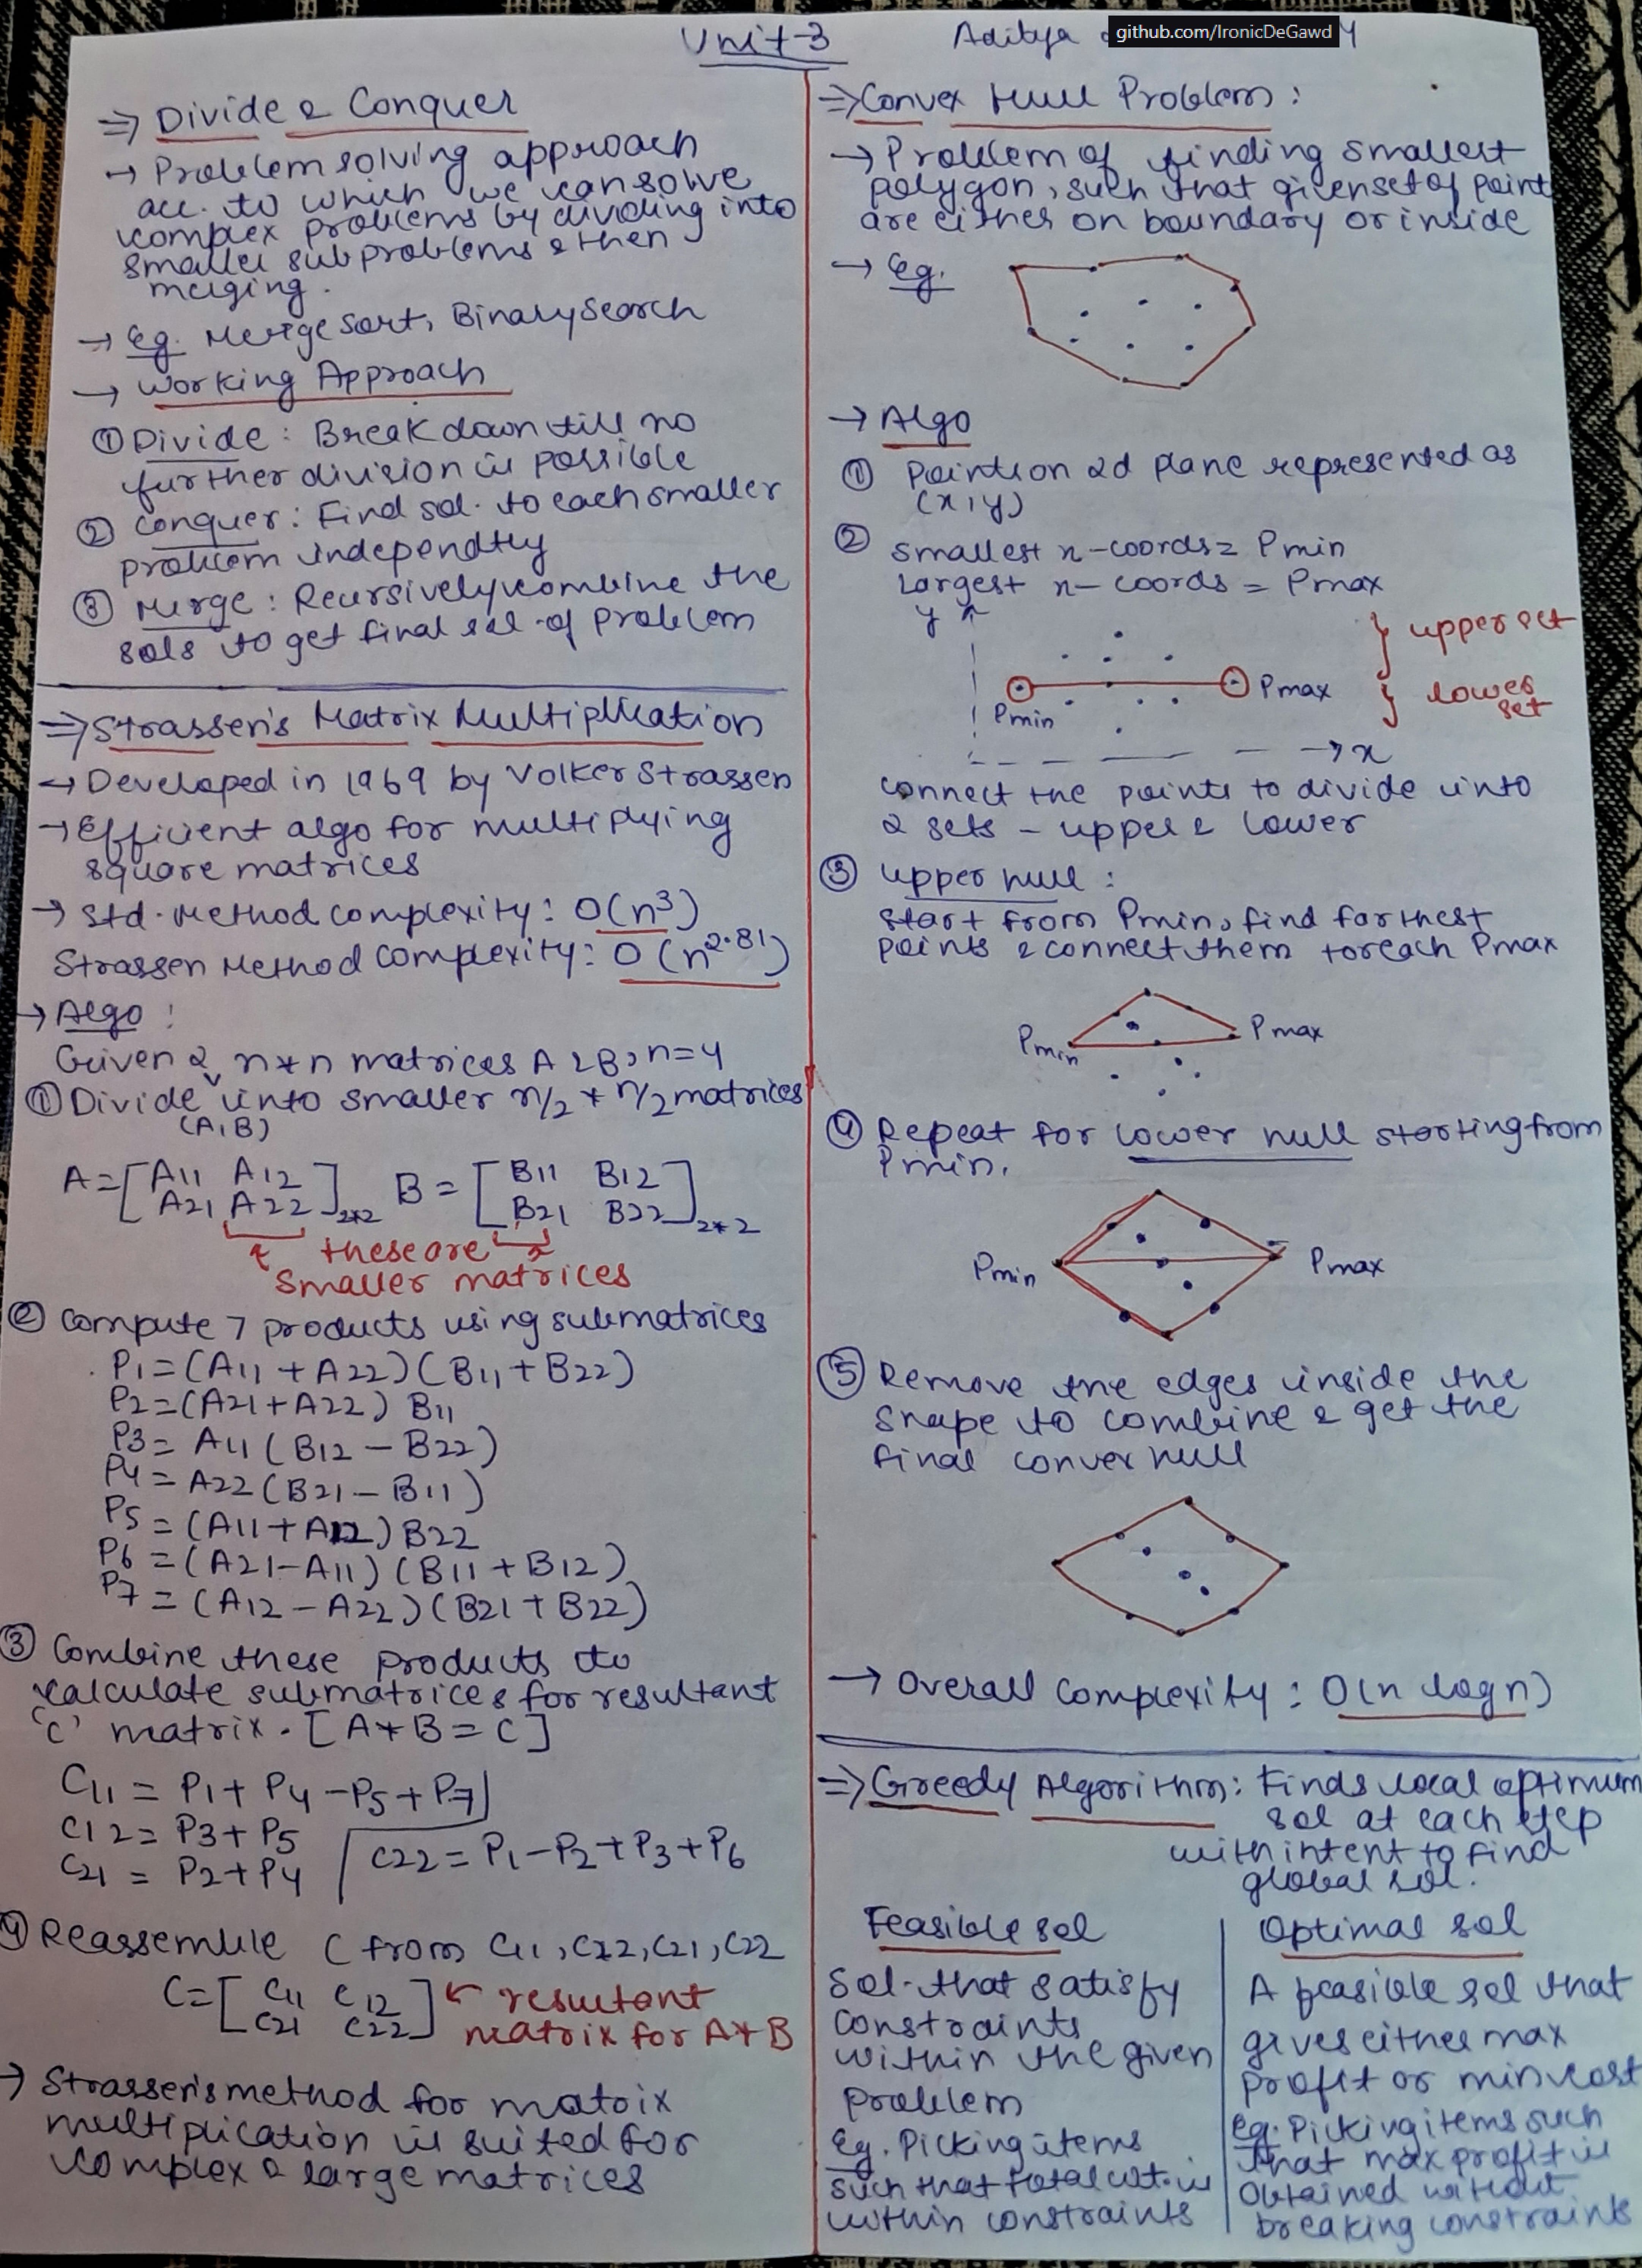 Unit-3
Aditya
github.com/IronicDeGawd
⇒ Divide & Conquer
→ Problem solving approach
acc. to which we can solve
complex problems by dividing into
smaller subproblems & then
merging.
→ Eg. Merge Sort, Binary Search
→ Working Approach
① Divide: Break down till no
further division is possible
② Conquer: Find sol. to each smaller
problem independtly
③ Merge: Recursively combine the
sols to get final sol of problem
⇒ Strassen's Matrix Multiplication
→ Developed in 1969 by Volker Strassen
→ Efficient algo for multiplying
square matrices
→ Std. Method complexity: O(n³)
Strassen Method Complexity: O(n^2.81)
→ Algo:
Given 2 n*n matrices A & B, n=4
① Divide into smaller n/2 * n/2 matrices
(A,B)
A = [A11 A12 B = [B11 B12
A21 A22]2*2 B21 B22]2*2
these are
smaller matrices
② Compute 7 products using submatrices
P1 = (A11 + A22)(B11 + B22)
P2 = (A21 + A22) B11
P3 = A11 (B12 - B22)
P4 = A22 (B21 - B11)
P5 = (A11 + A12) B22
P6 = (A21 - A11)(B11 + B12)
P7 = (A12 - A22)(B21 + B22)
③ Combine these products to
calculate submatrices for resultant
'C' matrix. [A*B = C]
C11 = P1 + P4 - P5 + P7
C12 = P3 + P5
C21 = P2 + P4
C22 = P1 - P2 + P3 + P6
④ Reassemble C from C11, C22, C21, C22
C = [C11 C12 ← resultant
C21 C22] matrix for A*B
→ Strassen's method for matrix
multiplication is suited for
complex & large matrices
⇒ Convex Hull Problem:
→ Problem of finding smallest
polygon, such that given set of point
are either on boundary or inside
→ Eg.
→ Algo
① Points on 2d plane represented as
(x,y)
② smallest x-coords = Pmin
Largest x-coords = Pmax
y
} upper set
Pmin
Pmax
} lower
set
→ x
connect the points to divide into
2 sets - upper & lower
③ Upper hull:
start from Pmin, find farthest
points & connect them to reach Pmax
Pmin
Pmax
④ Repeat for lower hull starting from
Pmin.
Pmin
Pmax
⑤ Remove the edges inside the
shape to combine & get the
final convex hull
→ Overall Complexity: O(n log n)
⇒ Greedy Algorithm: Finds local optimum
sol at each step
with intent to find
global sol.
Feasible sol
Sol. that satisfy
constraints
within the given
problem
Eg. Picking items
such that total wt. is
within constraints
Optimal sol
A feasible sol that
gives either max
profit or min cost
Eg. Picking items such
that max profit is
obtained without
breaking constraints